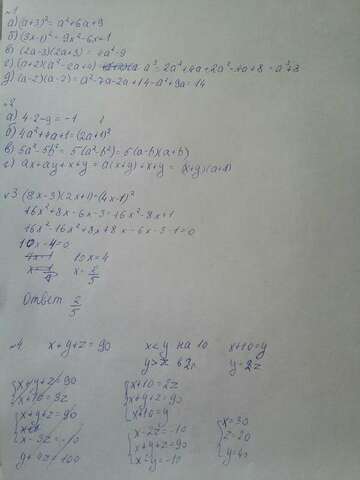 №1
а) (a+3)² = a²+6a+9
б) (3x-1)² = 9x²-6x+1
в) (2a-3)(2a+3) = 4a²-9
г) (a+2)(a²-2a+4) a³-2a²+4a+2a²-4a+8 = a³+8
д) (a-2)(a-7) = a²-7a-2a+14 = a²-9a+14
№2
а)
б) 4a²+4a+1 = (2a+1)²
в) 5a²-5b² = 5(a²-b²) = 5(a-b)(a+b)
г) ax+ay+x+y = a(x+y)+x+y = (x+y)(a+1)
№3 (8x-3)(2x+1)=(4x-1)²
16x²+8x-6x-3=16x²-8x+1
16x²-16x²+8x+8x-6x-3-1=0
10x-4=0
4x=1 10x=4
x=1/4 x=2/5
Ответ 2/5
№4 x+y+z=90 x<y на 10 x+10=y
y>z в 2 y=2z
x+y+z=90 x+10=2z
x+10=3z x+y+z=90
x+y+z=90 x+10=y
x-3z=-10 x-2z=-10 x=30
y+4z=100 x+y+z=90 z=20
x-y=-10 y=40